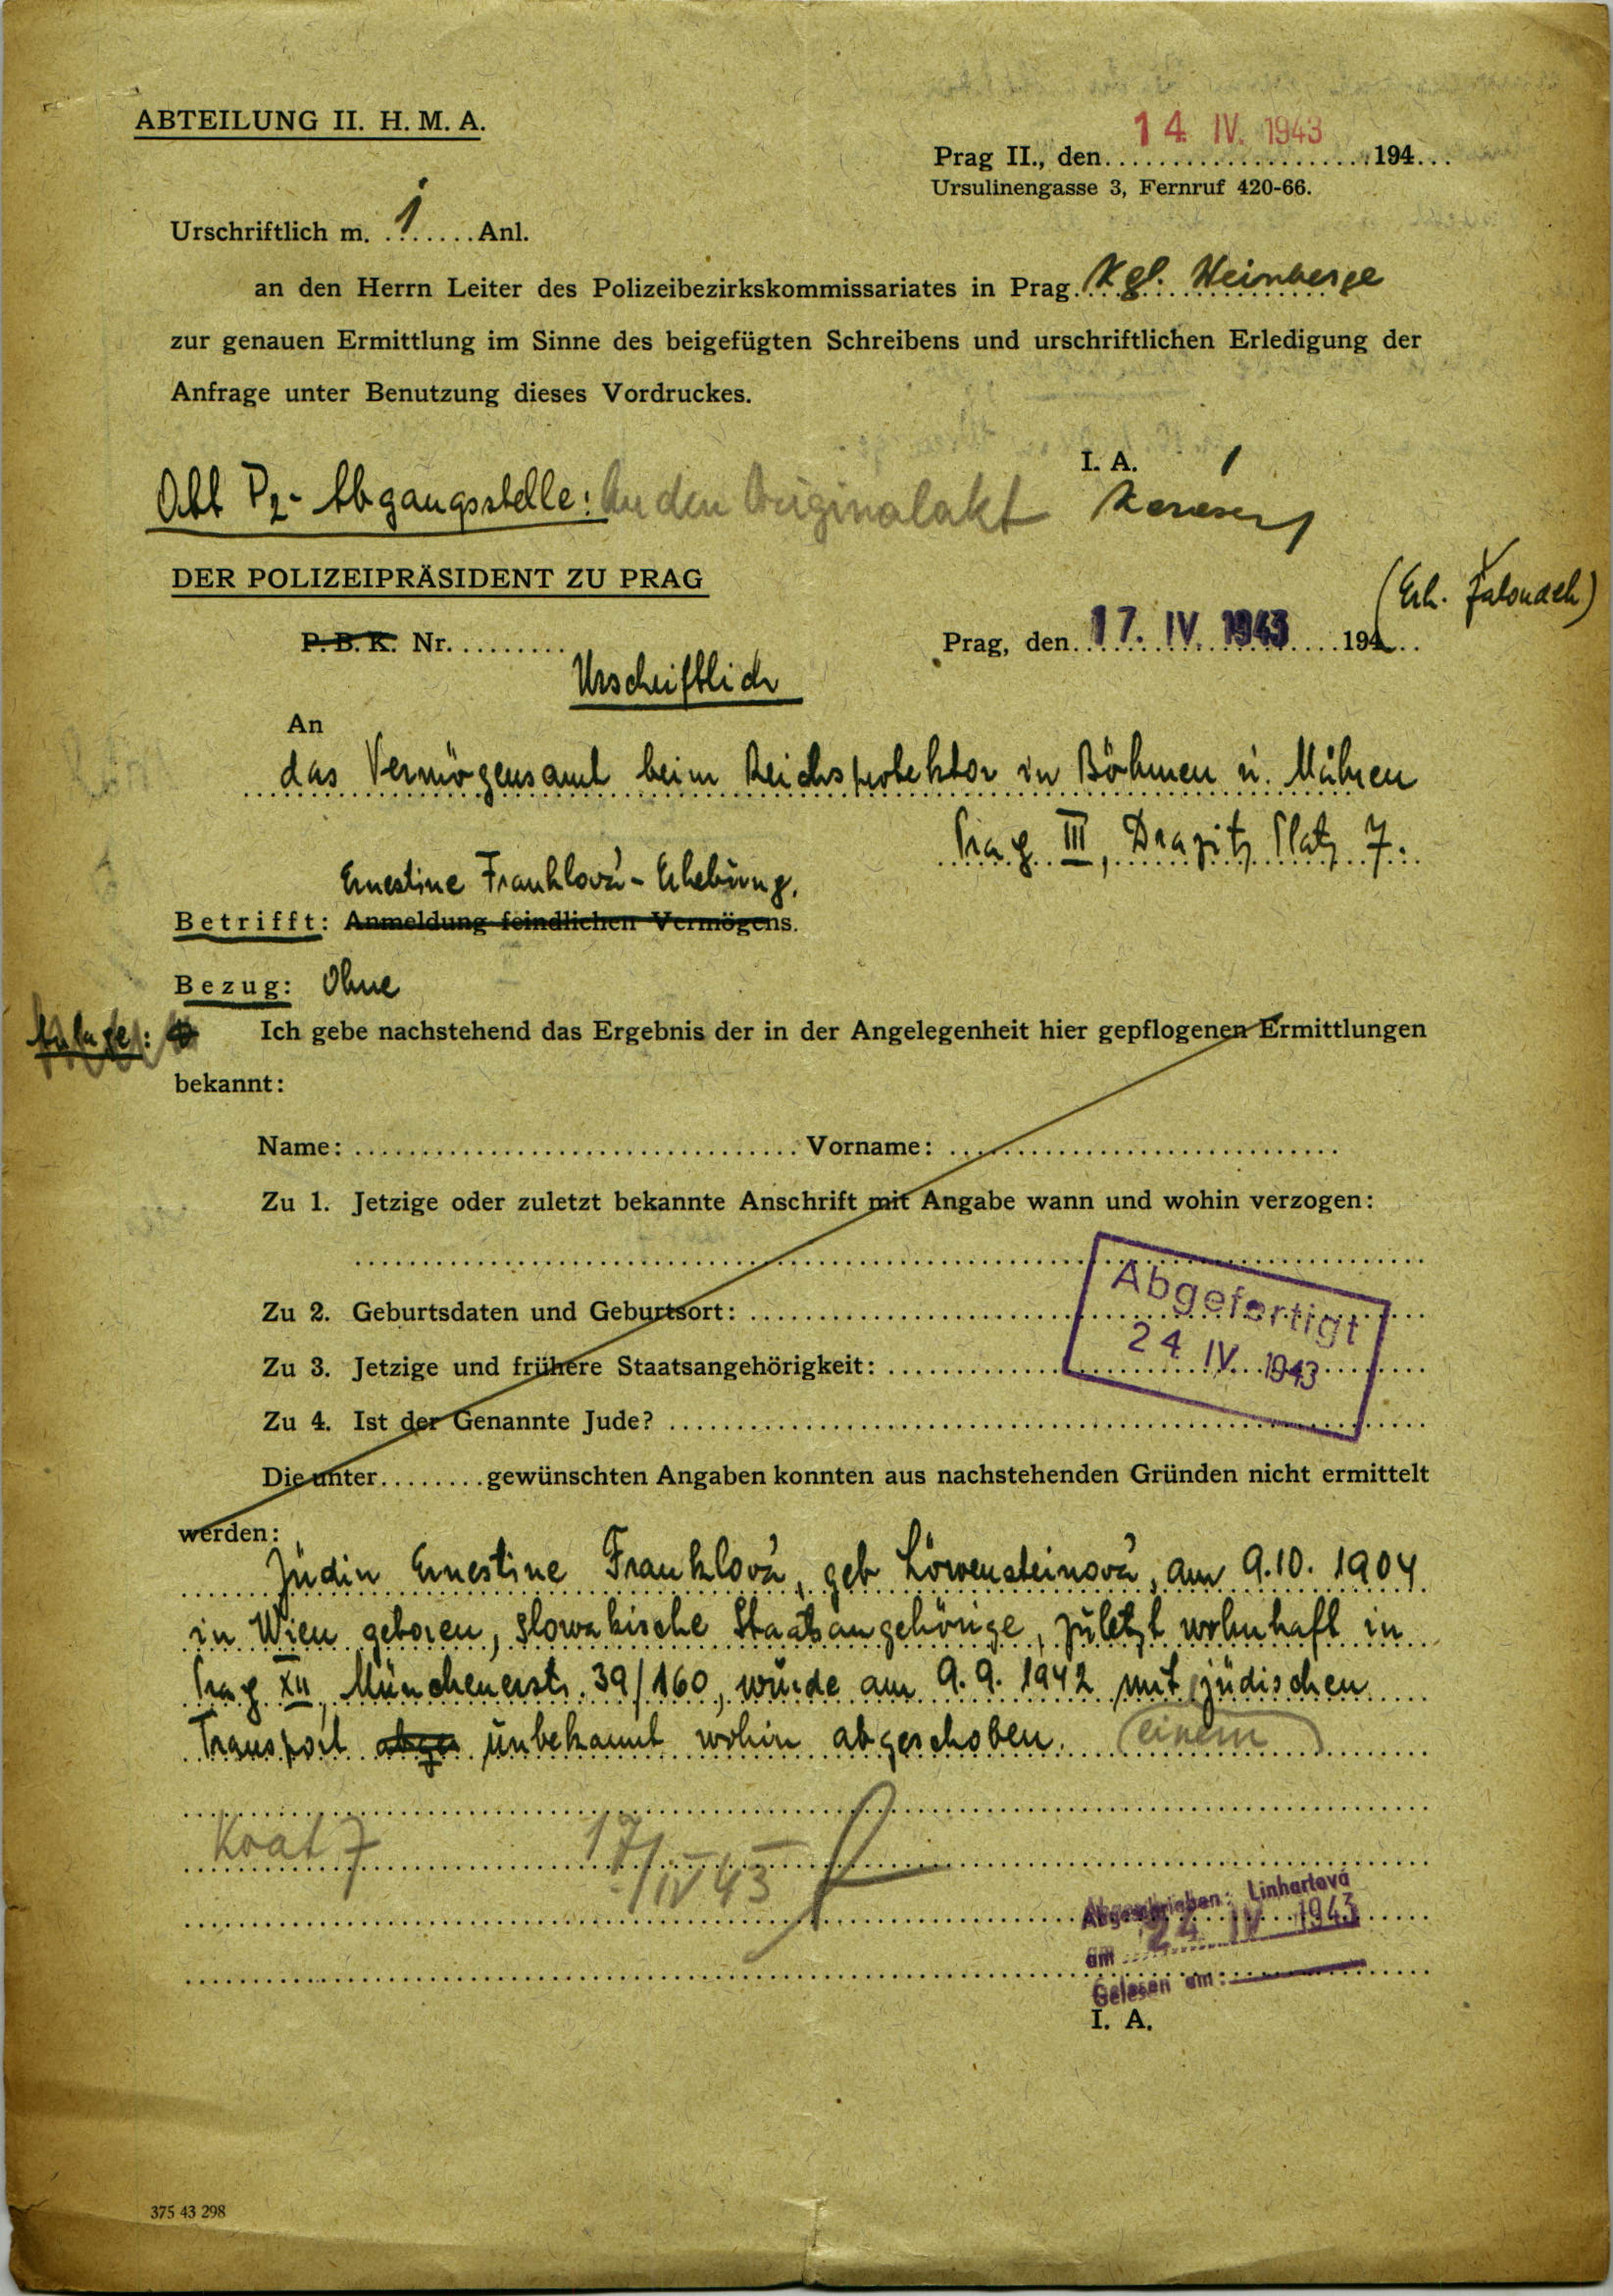 ABTEILUNG II. H. M. A.
14. IV. 1943
Prag II., den....................194...
Ursulinengasse 3, Fernruf 420-66.
Urschriftlich m. 1 Anl.
an den Herrn Leiter des Polizeibezirkskommissariates in Prag Kgl. Weinberge
zur genauen Ermittlung im Sinne des beigefügten Schreibens und urschriftlichen Erledigung der
Anfrage unter Benutzung dieses Vordruckes.
I. A.
Abt P2- Abgangsstelle: An den Originalakt
DER POLIZEIPRÄSIDENT ZU PRAG
P. B. K. Nr.........
Prag, den 17. IV. 1943 194...
Urschriftlich
An
das Vermögensamt beim Reichsprotektor in Böhmen u. Mähren
Prag III, Drazitz Platz 7.
Ernestine Franklová - Erhebung.
Betrifft: Anmeldung feindlichen Vermögens.
Bezug: Ohne
Anlage:
Ich gebe nachstehend das Ergebnis der in der Angelegenheit hier gepflogenen Ermittlungen
bekannt:
Name: ................................. Vorname: .............................
Zu 1. Jetzige oder zuletzt bekannte Anschrift mit Angabe wann und wohin verzogen:
Zu 2. Geburtsdaten und Geburtsort: ..................
Zu 3. Jetzige und frühere Staatsangehörigkeit: ..................
Zu 4. Ist der Genannte Jude? ..................
Abgefertigt
24 IV. 1943
Die unter........gewünschten Angaben konnten aus nachstehenden Gründen nicht ermittelt
werden:
Jüdin Ernestine Franklová, geb Löwensteinová, am 9.10. 1904
in Wien geboren, slowakische Staatsangehörige, zuletzt wohnhaft in
Prag XII, Münchenerstr. 39/160, wurde am 9. 9. 1942 mit jüdischen
Transport abge unbekannt wohin abgeschoben. einem
17/IV 43
Abgeschrieben: Linhartová
am 24 IV 1943
Gelesen am:
I. A.
375 43 298